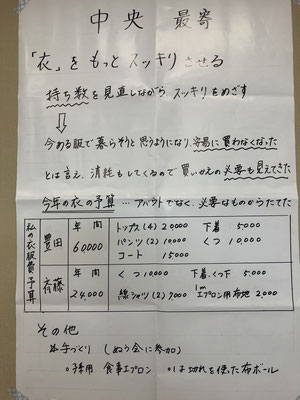 中央 最寄
「衣」を もっと スッキリ させる
持ち数を見直しながら スッキリをめざす
⇓
今ある服で暮らそうと思うようになり、容易に買わなくなった
とは言え、消耗もしてくるので買いかえの必要も見えてきた
今年の衣の予算 … アバウトでなく、必要なものからたてた
私の衣服費予算
豊田 年間 60000
トップス(4) 20000 下着 5000
パンツ(2) 10000 くつ 10,000
コート 15000
斉藤 年間 24,000
くつ 10,000 下着、くつ下 5,000
綿シャツ(2) 7000 1m エプロン用布地 2,000
その他
手づくり (ぬう会に参加)
○ 食事エプロン ○はぎれを使った布ボール